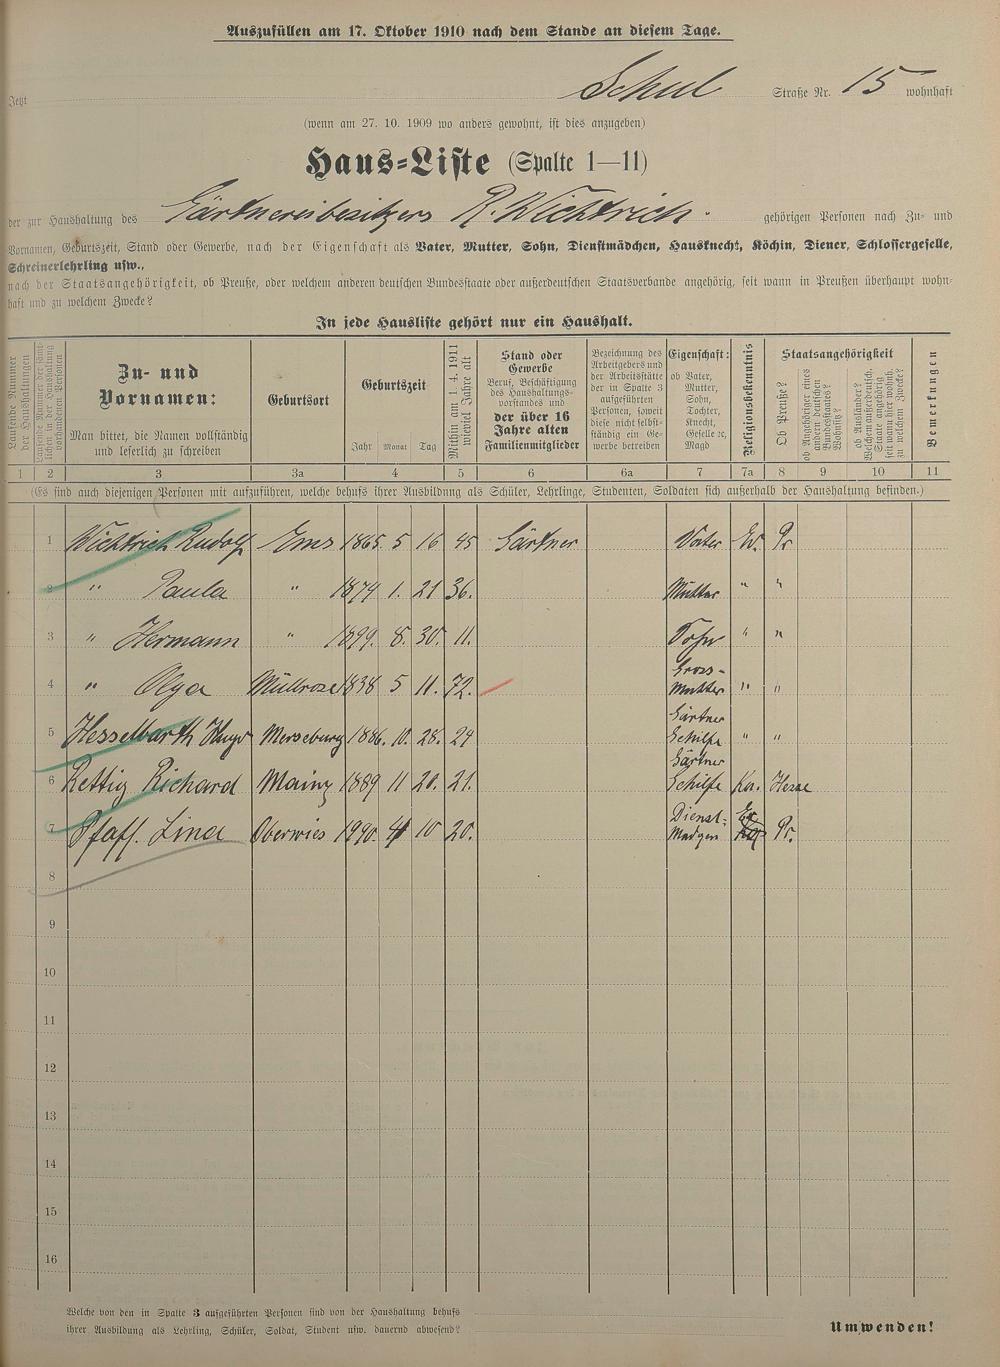 Auszufüllen am 17. Oktober 1910 nach dem Stande an diesem Tage.
Jetzt Schul Straße Nr. 15 wohnhaft
(wenn am 27. 10. 1909 wo anders gewohnt, ist dies anzugeben)
Haus-Liste (Spalte 1—11)
der zur Haushaltung des Gärtnereibesitzers R. Wichtrich. gehörigen Personen nach Zu- und
Vornamen, Geburtszeit, Stand oder Gewerbe, nach der Eigenschaft als Vater, Mutter, Sohn, Dienstmädchen, Hausknecht, Köchin, Diener, Schlossergeselle,
Schreinerlehrling usw.,
nach der Staatsangehörigkeit, ob Preuße, oder welchem anderen deutschen Bundesstaate oder außerdeutschen Staatsverbande angehörig, seit wann in Preußen überhaupt wohn-
haft und zu welchem Zwecke?
In jede Hausliste gehört nur ein Haushalt.
Laufende Nummer
der Haushaltungen
Laufende Nummer der sämt-
lichen in der Haushaltung
vorhandenen Personen
Zu- und
Vornamen:
Man bittet, die Namen vollständig
und leserlich zu schreiben
Geburtsort
Geburtszeit
Jahr Monat Tag
Mithin am 1. 4. 1911
wieviel Jahre alt
Stand oder
Gewerbe
Beruf, Beschäftigung
des Haushaltungs-
vorstandes und
der über 16
Jahre alten
Familienmitglieder
Bezeichnung des
Arbeitgebers und
der Arbeitsstätte
der in Spalte 3
aufgeführten
Personen, soweit
diese nicht selbst-
ständig ein Ge-
werbe betreiben
Eigenschaft:
ob Vater,
Mutter,
Sohn,
Tochter,
Knecht,
Geselle ec,
Magd
Religionsbekenntnis
Staatsangehörigkeit
Ob Preuße?
ob Angehöriger eines
andern deutschen
Bundesstaates?
Wohnsitz?
ob Ausländer?
Welchem außerdeutsch.
Staate angehörig
seit wann hier wohnh.
zu welchem Zwecke?
Bemerkungen
1 2 3 3a 4 5 6 6a 7 7a 8 9 10 11
(Es sind auch diejenigen Personen mit aufzuführen, welche behufs ihrer Ausbildung als Schüler, Lehrlinge, Studenten, Soldaten sich außerhalb der Haushaltung befinden.)
1 Wichtrich Rudolf Ems 1865. 5 16 45 Gärtner Vater Ev. Pr
2 " Paula " 1874 1. 21 36. Mutter " "
3 " Hermann " 1899. 8. 30. 11. Sohn " "
4 " Olga Müllrose 1838 5 11. 72. Gross-
Mutter " "
5 Hesselbarth Hugo Merseburg 1886. 10. 28. 24 Gärtner
Gehilfe " "
6 Rettig Richard Mainz 1889 11 20. 21. Gärtner
Gehilfe Ka. Hesse
7 Pfaff. Lina Oberwies 1990. 4 10 20. Dienst-
Madgen Ev. Pr.
8
9
10
11
12
13
14
15
16
Welche von den in Spalte 3 aufgeführten Personen sind von der Haushaltung behufs
ihrer Ausbildung als Lehrling, Schüler, Soldat, Student usw. dauernd abwesend?
Umwenden!